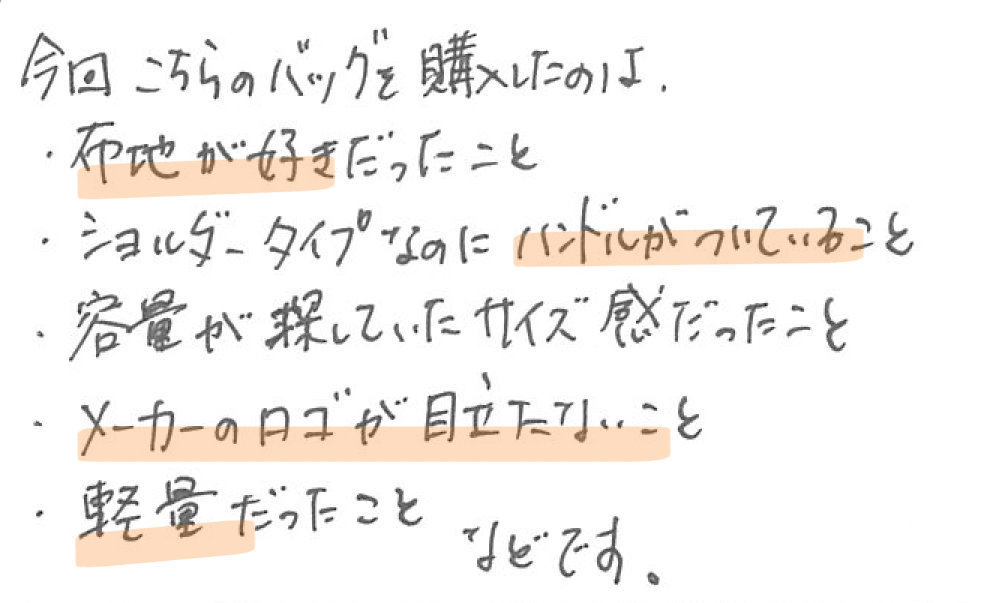 今回こちらのバッグを購入したのは、
・布地が好きだったこと
・ショルダータイプなのにハンドルがついていること
・容量が探していたサイズ感だったこと
・メーカーのロゴが目立たないこと
・軽量だったこと
などです。